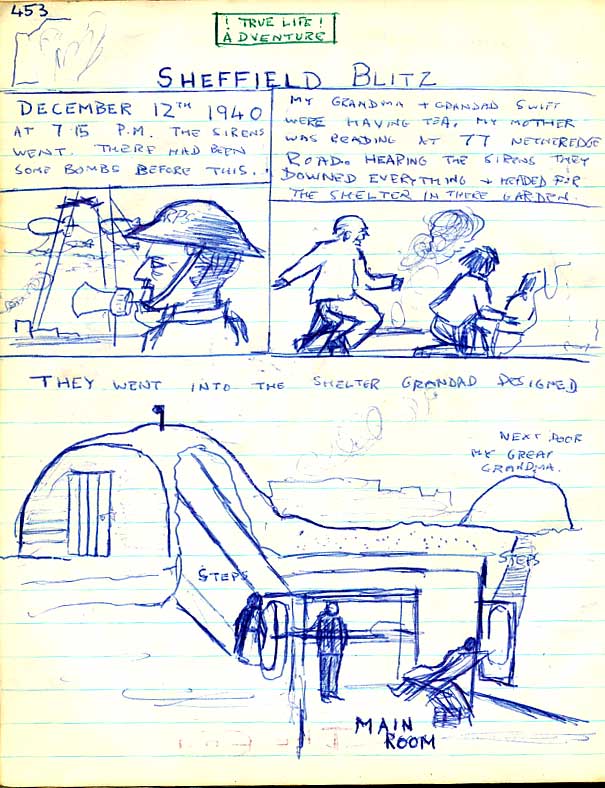 453
! TRUE LIFE !
ADVENTURE
SHEFFIELD BLITZ
DECEMBER 12TH 1940
AT 7 15 P.M. THE SIRENS
WENT. THERE HAD BEEN
SOME BOMBS BEFORE THIS..
MY GRANDMA + GRANDAD SWIFT
WERE HAVING TEA. MY MOTHER
WAS READING AT 77 NETHEREDGE
ROAD. HEARING THE SIRENS THEY
DOWNED EVERYTHING + HEADED FOR
THE SHELTER IN THERE GARDEN.
ARP
THEY WENT INTO THE SHELTER GRANDAD DESIGNED
NEXT DOOR
MY GREAT
GRANDMA.
STEPS
STEPS
MAIN
ROOM